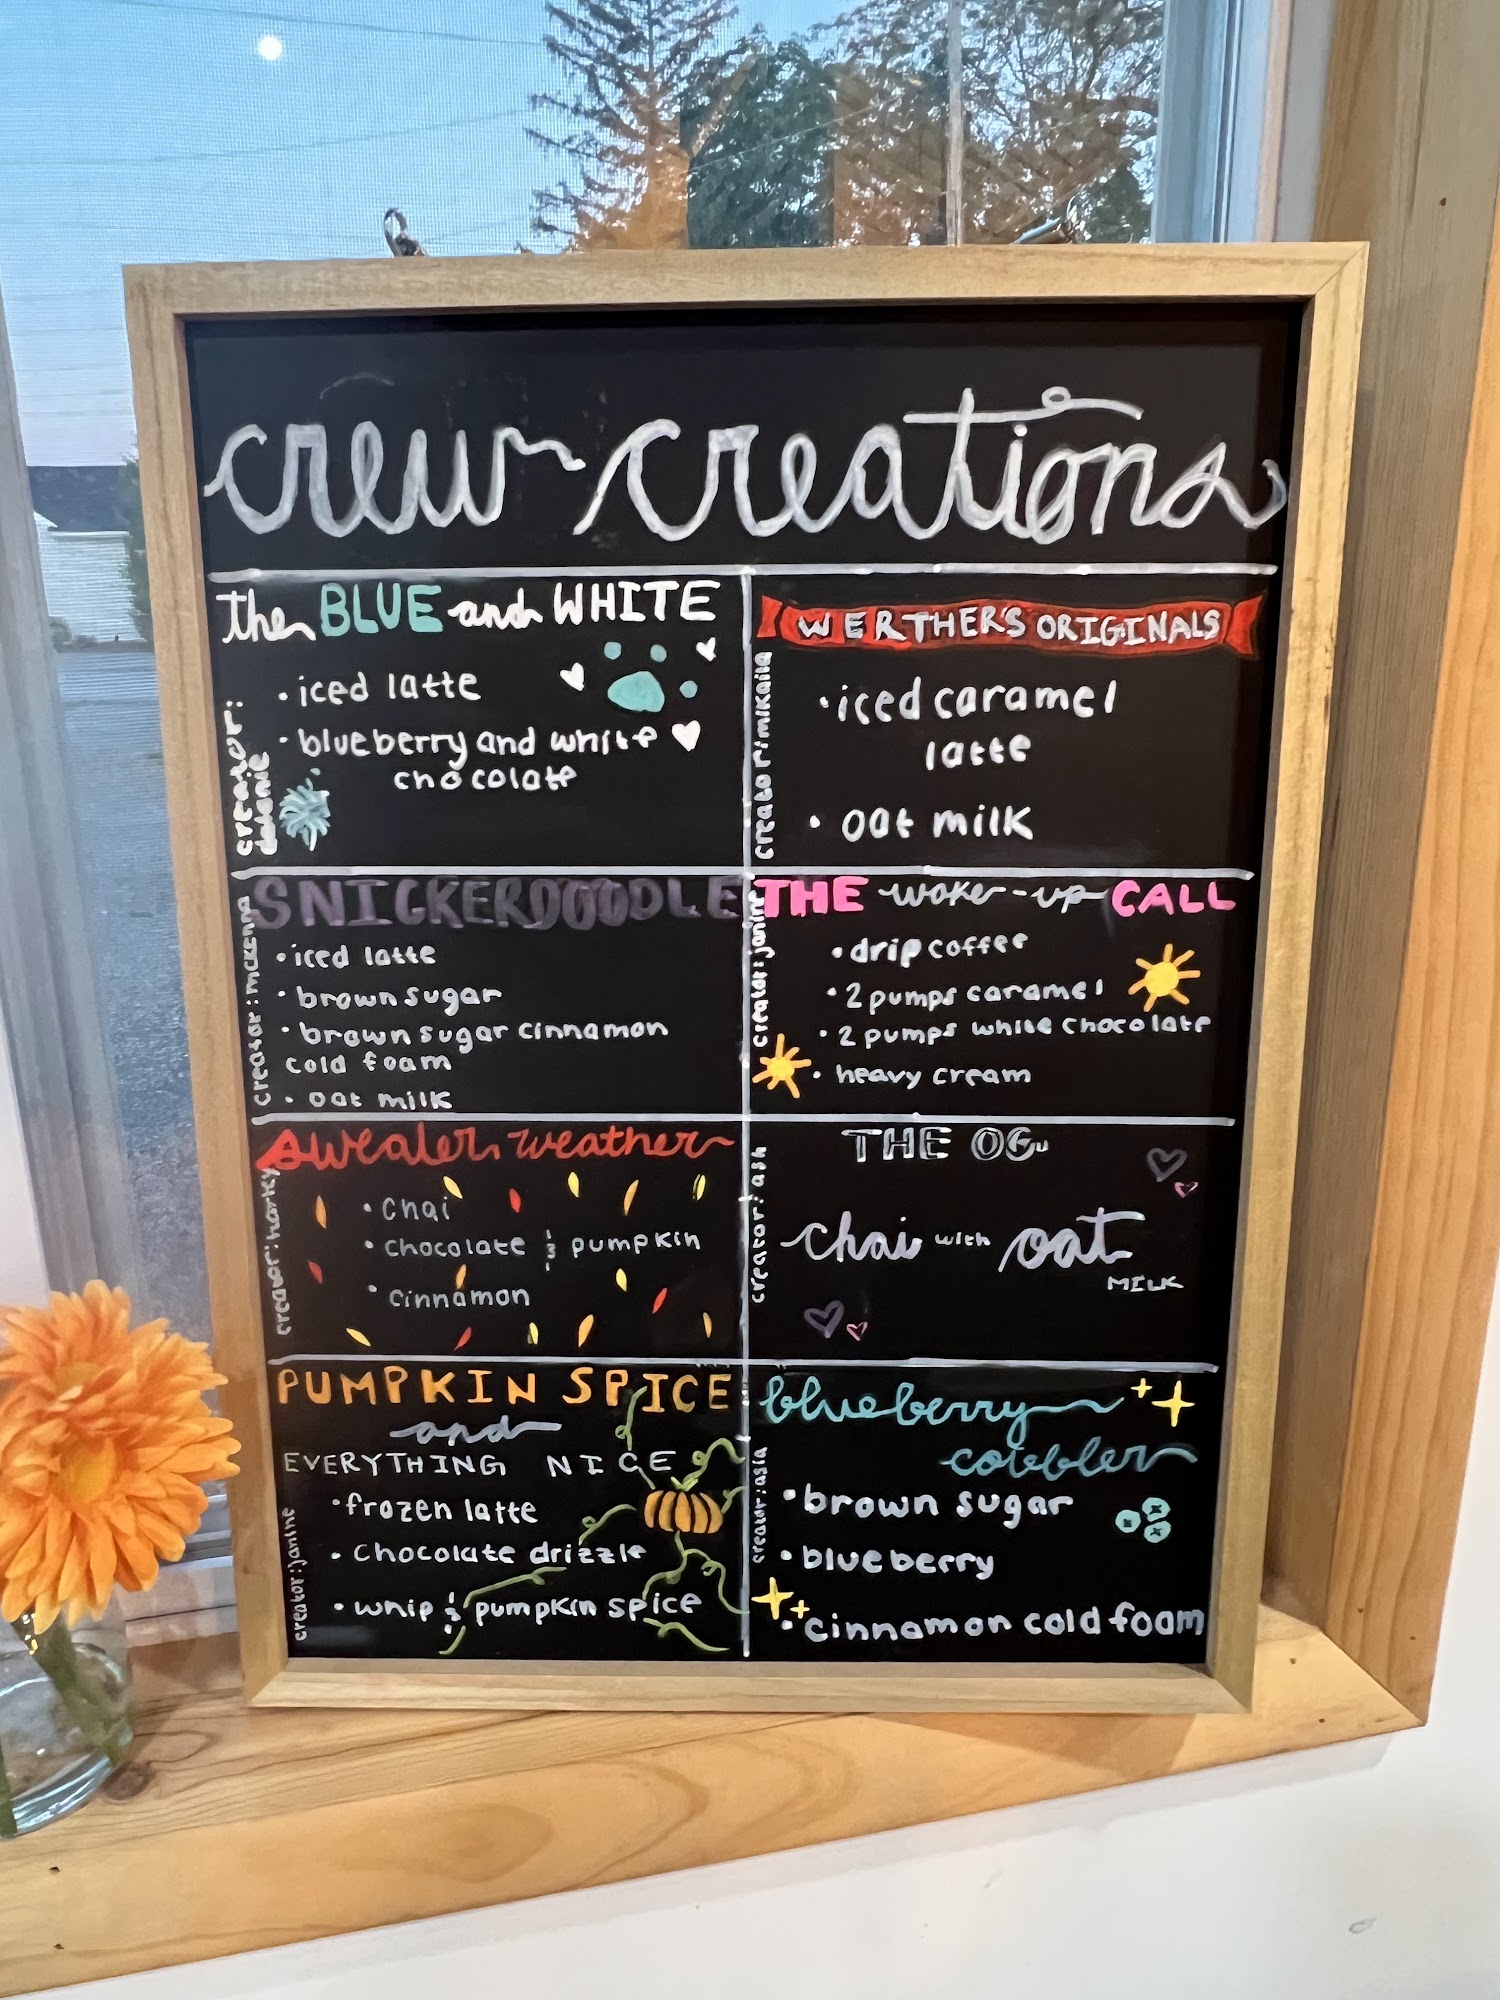 crew creations
the BLUE and WHITE
• iced latte
• blueberry and white
chocolate
creator:
WERTHER'S ORIGINALS
• iced caramel
latte
• oat milk
creator: mikaila
SNICKERDOOODLE
• iced latte
• brown sugar
• brown sugar cinnamon
cold foam
• oat milk
creator: mckenna
THE wake-up CALL
• drip coffee
• 2 pumps caramel
• 2 pumps white chocolate
• heavy cream
creator: janine
sweater weather
• chai
• chocolate & pumpkin
• cinnamon
creator: harky
THE OG
chai with oat
MILK
creator: ash
PUMPKIN SPICE
and
EVERYTHING NICE
• frozen latte
• chocolate drizzle
• whip & pumpkin spice
creator: janine
blueberry
cobbler
• brown sugar
• blueberry
• cinnamon cold foam
creator: asia